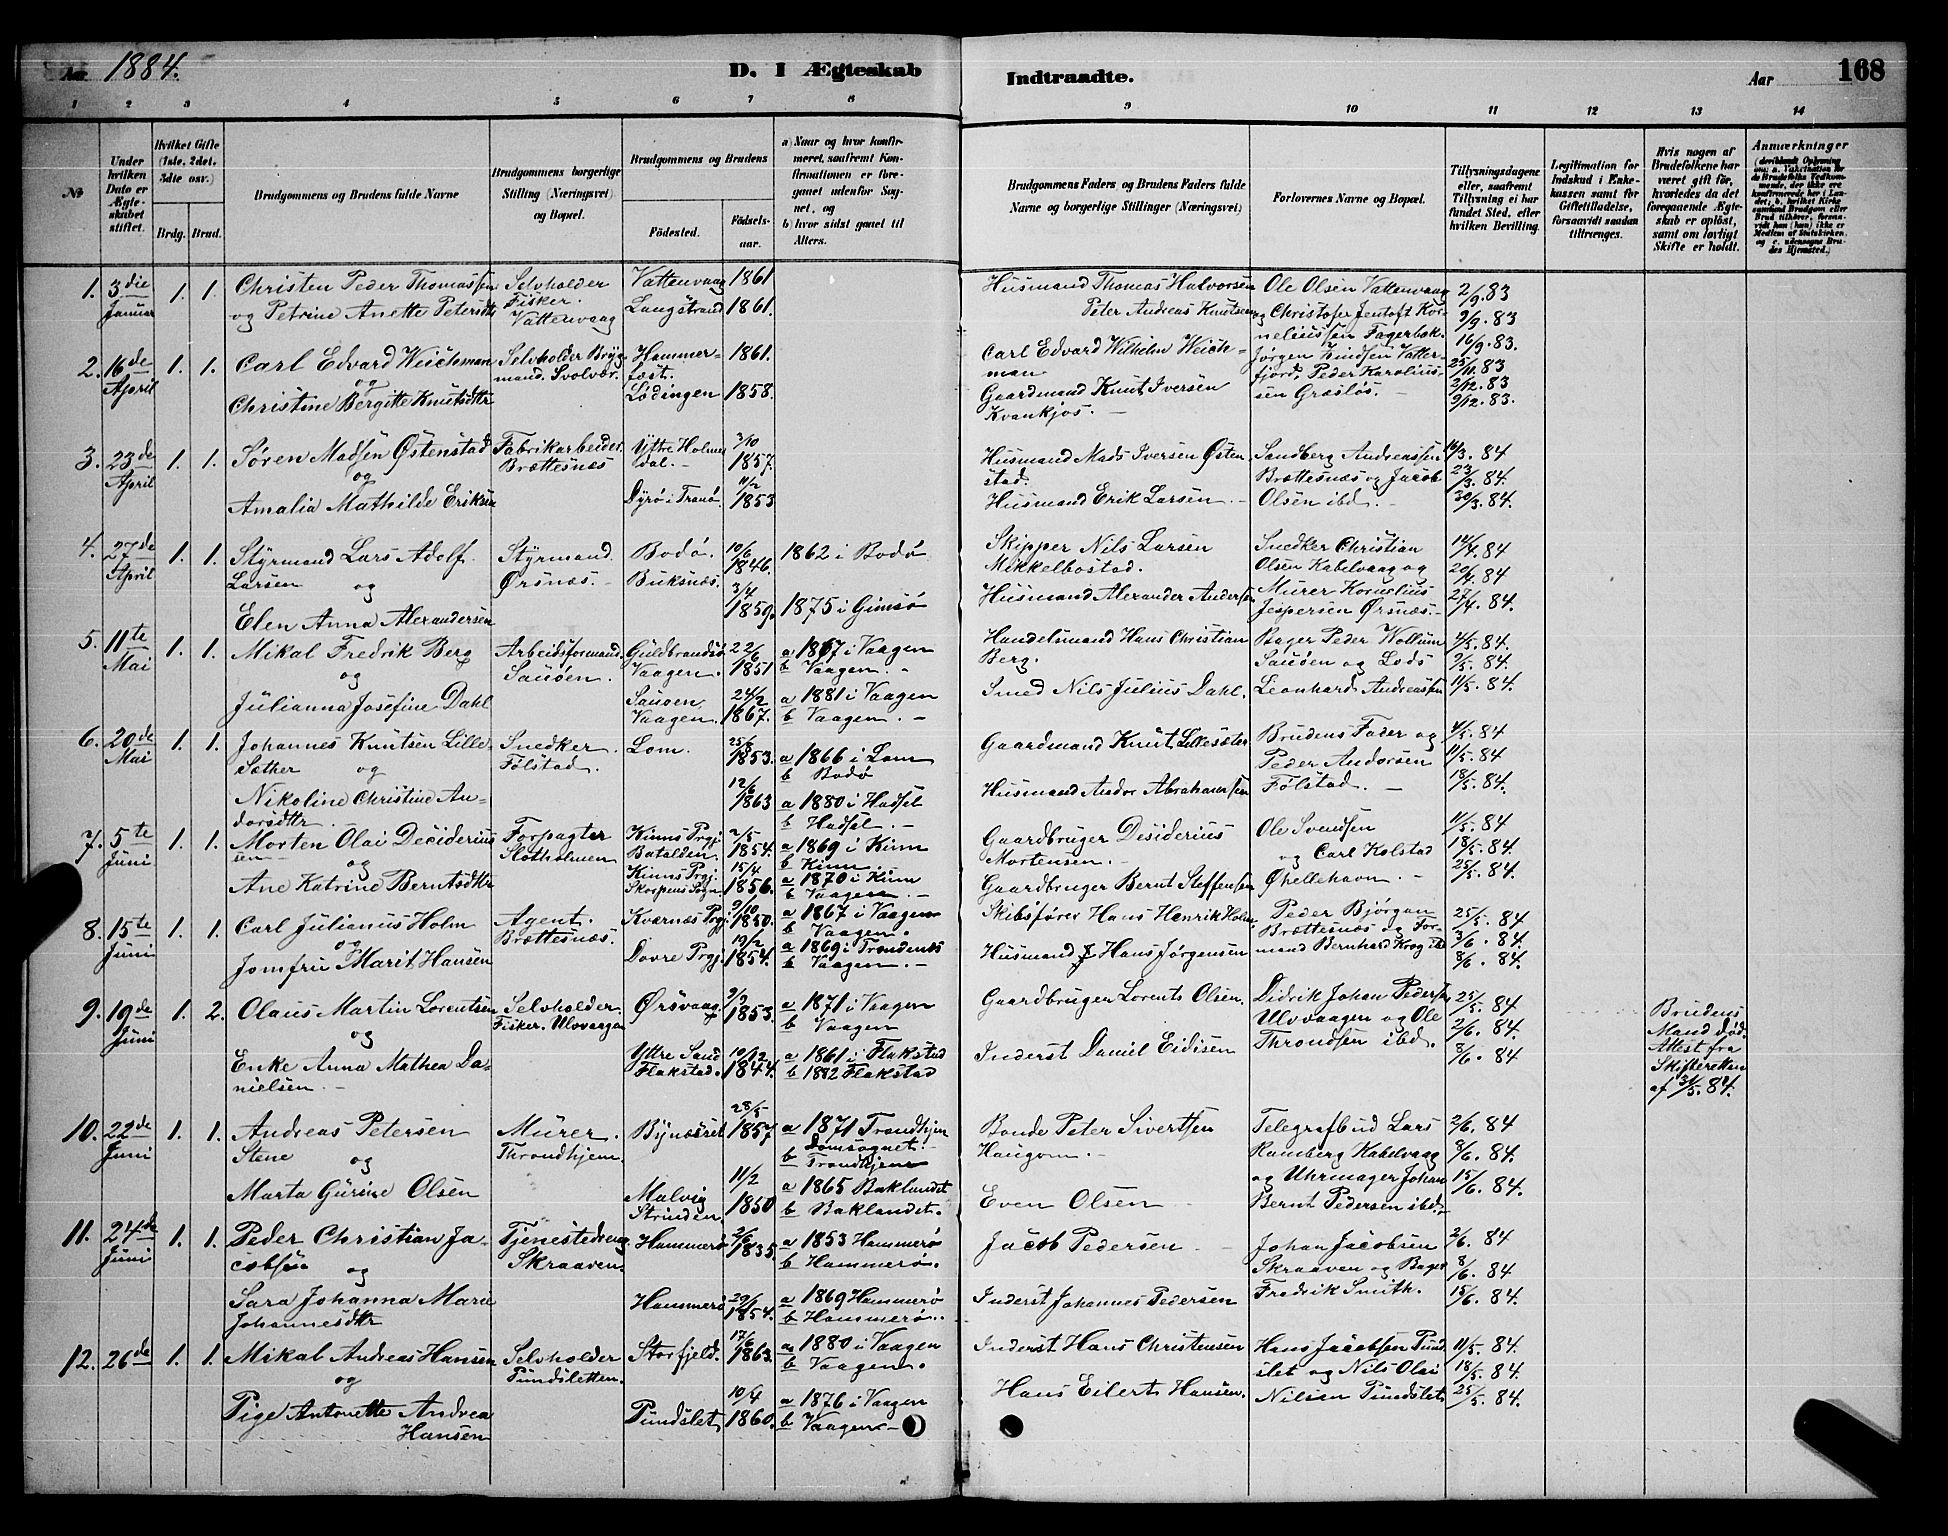 Aar 1884.
D. I Ægteskab
Indtraadte.
Aar
168
1 2 3 4 5 6 7 8 9 10 11 12 13 14
No
Under hvilken Dato er Ægteskabet stiftet.
Hvilket Gifte (1ste, 2det, 3die osv.)
Brdg. Brud.
Brudgommens og Brudens fulde Navne
Brudgommens borgerlige Stilling (Næringsvei) og Bopæl.
Brudgommens og Brudens
Födested.
Födselsaar.
a) Naar og hvor konfirmeret, saafremt Konfirmationen er foregaaet udenfor Sognet, og
b) hvor sidst gaaet til Alters.
Brudgommens Faders og Brudens Faders fulde Navne og borgerlige Stillinger (Næringsvei)
Forlovernes Navne og Bopæl.
Tillysningsdagene eller, saafremt Tillysning ei har fundet Sted, efter hvilken Bevilling.
Legitimation for Indskud i Enkekassen samt for Giftetilladelse, forsaavidt saadan tiltrænges.
Hvis nogen af Brudefolkene har været gift før, hvorledes da det foregaaende Ægteskab er opløst, samt om lovligt Skifte er holdt.
Anmærkninger
1. 3die Januar 1. 1.
Christen Peder Thomassen
og Petrine Anette Petersdtr
Selvholder
Fisker.
Vattenvaag
Vattenvaag 1861
Langstrand 1861.
Husmand Thomas Halvorsen
Peter Andreas Knutsen
Ole Olsen Vattenvaag
og Christofer Jentoft Kor-
neliussen Fagerbak.
2/9. 83
9/9. 83
16/9. 83.
2. 16de April 1. 1.
Carl Edvard Weichman
og
Christine Bergitte Knutsdtr
Selvholder Bryg
mand. Svolvær.
Hammer-
fest. 1861.
Lødingen 1858.
Carl Edvard Wilhelm Weich-
man
Gaardmand Knut Iversen
Kvankjos. —
Jørgen Zindsen Vatter-
fjord, Peder Karolius-
sen Græsløs. —
25/11. 83
2/12. 83
9/12. 83.
3. 23de April 1. 1.
Søren Madsen Østenstad
og
Amalia Mathilde Eriksen
Fabrikarbeider.
Brættesnæs
Yttre Holme
dal. —
3/10 1857.
Dyrø i Tranø.
11/2 1853
Husmand Mads Iversen Østen
stad.
Husmand Erik Larsen. —
Sandberg Andreassen
Brættesnæs og Jacob
Olsen ibd. —
16/3. 84
23/3. 84.
30/3. 84.
4. 27de April 1. 1.
Styrmand Lars Adolf
Larsen og
Elen Anna Alexandersen
Styrmand.
Ørsnæs. —
Bodø. 10/6 1846. 1862 i Bodø
Buksnæs. 3/4 1859. 1875 i Gimsø
Skipper Nils Larsen
Mikkelbostad.
Husmand Alexander Andersen
Snedker Christian
Olsen Kabelvaag og
Murer Kornelius
Jespersen Ørsnæs. —
14/4. 84
20/4. 84
27/4. 84.
5. 11te Mai 1. 1.
Mikal Fredrik Berg
og
Julianna Josefine Dahl
Arbeidsformand.
Sauøen.
Guldbrandsø
Vaagen. 22/6 1851
a 1867 i Vaagen
b Vaagen. —
Sauøen
Vaagen. 24/2 1867.
a 1881 i Vaagen
b Vaagen. —
Handelsmand Hans Christian
Berg.
Smed Nils Julius Dahl.
Bager Peder Wollum
Sauøen og Lods
Leonhard Andreassen
4/5. 84.
9/5. 84.
11/5. 84.
6. 20de Mai 1. 1.
Johannes Knutsen Lille
Sæther og
Nikoline Christine An-
dorsdtr —
Snedker
Følstad.
Lom. 25/8 1853.
a 1866 i Lom
b Bodø
12/6 1863
a 1880 i Hadsel
b Hadsel. —
Gaardmand Knut Lillesæter
Husmand Andor Abrahamsen
Brudens Fader og
Peder Andorsen
Følstad. —
4/5. 84
11/5. 84
18/5. 84.
7. 5te Juni 1. 1.
Morten Olai Deciderius
sen —
og
Ane Katrine Berntsdtr
Forpagter
Slotholmen
Kinns Prgj.
Batalden. 2/5 1854.
a 1869 i Kinn
b Kinn
Kinns Prgj.
Skorpens Sogn 15/4 1856.
a 1870 i Kinn
b Vaagen. —
Gaardbruger Desiderius
Mortensen. —
Gaardbruger Bernt Steffensen
Ole Svendsen
og Carl Kolstad
Øhellehavn. —
11/5. 84
18/5. 84.
25/5. 84.
8. 15te Juni 1. 1.
Carl Julianus Holm
og
Jomfru Marit Hansen
Agent.
Brættesnæs.
Kværnæs Prgj. 9/10 1850.
a 1867 i Vaagen
b Vaagen.
Dovre Prgj. 19/2 1854.
a 1869 i Trondenæs
b Vaagen. —
Skibsfører Hans Henrik Holm.
Husmand J Hans Jørgensen
Peder Bjørgan
Brættesnæs og For-
mand Bernhard Krog ibd
25/5. 84
3/6. 84.
8/6. 84.
9. 19de Juni 1. 2.
Olaus Martin Lorentsen
og
Enke Anna Mathea Da-
nielsen. —
Selvholder
Fisker. Ulvvagen
Ørsvaag 9/9 1853.
a 1871 i Vaagen
b Vaagen
Yttre Sand
Flakstad. 10/12 1844.
a 1861 i Flakstad
b 1882 Flakstad
Gaardbruger Lorents Olsen.
Inderst Daniel Eidisen
Didrik Johan Pedersen
Ulvvaagen og Ole
Throndsen ibd.
25/5. 84
2/6. 84.
8/6. 84
Brudens
Mand død.
Attest fra
Skifteretten
af 31/5. 84.
10. 22de Juni 1. 1.
Andreas Petersen
Stene og
Marta Gurine Olsen
Murer.
Throndhjem.
Bynæsset 28/5 1857
a 1871 Trondhjem
Domsognet.
b Trondhjem
Malvig
Strinden. 11/2 1850
a 1865 Baklandet
b Baklandet.
Bonde Peter Sivertsen
Haugom. —
Even Olsen —
Telegrafbud Lars
Ramberg Kabelvaag
og Uhrmager Johan
Bernt Pedersen ibd. —
2/6. 84
8/6. 84.
15/6. 84.
11. 24de Juni 1. 1.
Peder Christian Ja-
cobsen og
Sara Johanna Marie
Johannesdtr
Tjenestedreng
Skraaven.
Hammerø 2/6 1835.
a 1853 Hammerø
b Hammerø.
Hammerø 29/1 1854.
a 1869 Hammerø
b Hammerø. —
Jacob Pedersen —
Inderst Johannes Pedersen
Johan Jacobsen
Skraaven og Bager
Fredrik Smith.
2/6. 84
8/6. 84
15/6. 84.
12. 26de 1. 1.
Mikal Andreas Hansen
og
Pige Antonette Andrea
Hansen
Selvholder
Pundsletten.
Storfjeld. 17/6 1863.
a 1880 i Vaagen
b Vaagen.
Pundslet 10/4 1860.
a 1876 i Vaagen
b Vaagen —
Inderst Hans Christensen
Hans Eilert Hansen.
Hans Jacobsen Pund
slet og Nils Olai
Nilsen Pundslet
11/5. 84.
18/5. 84.
25/5. 84.